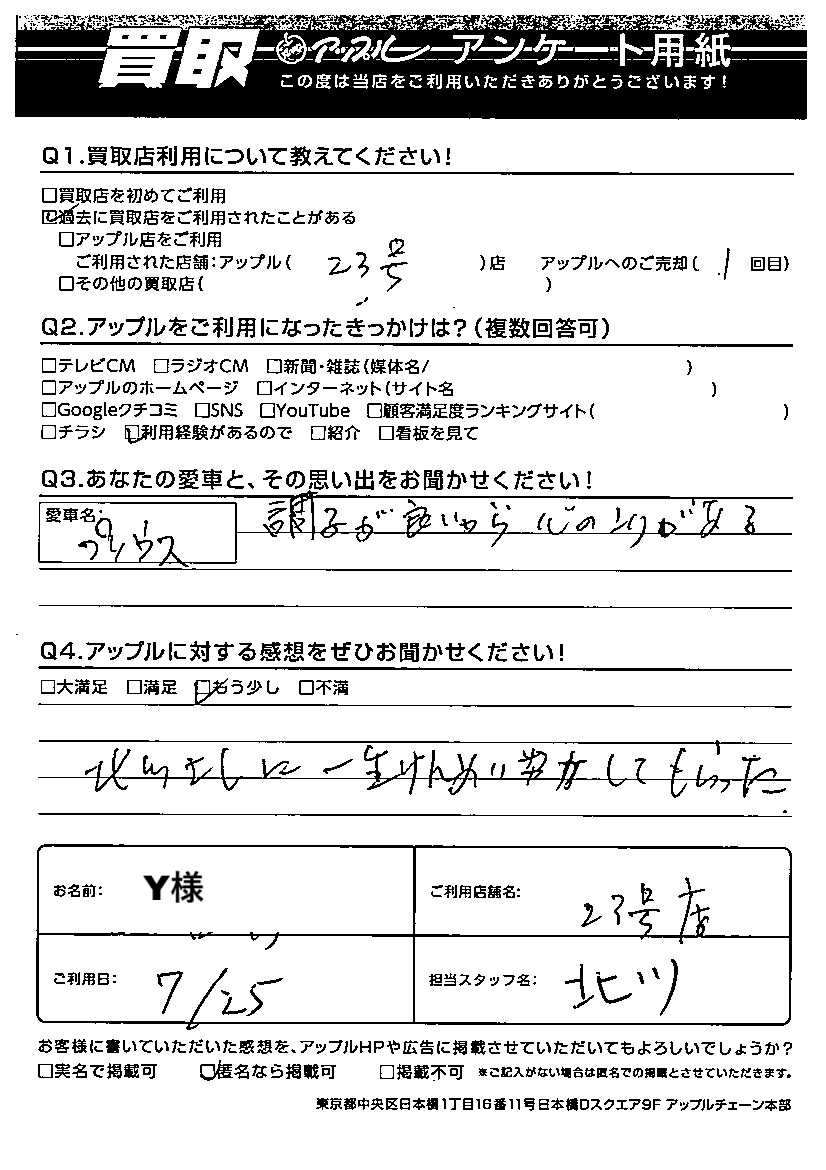 買取 アップル アンケート用紙
この度は当店をご利用いただきありがとうございます！
Q1.買取店利用について教えてください！
□買取店を初めてご利用
☑過去に買取店をご利用されたことがある
□アップル店をご利用
ご利用された店舗:アップル( 23号 )店 アップルへのご売却( 1 回目)
□その他の買取店( )
Q2.アップルをご利用になったきっかけは?(複数回答可)
□テレビCM □ラジオCM □新聞・雑誌(媒体名/ )
□アップルのホームページ □インターネット(サイト名 )
□Googleクチコミ □SNS □YouTube □顧客満足度ランキングサイト( )
□チラシ ☑利用経験があるので □紹介 □看板を見て
Q3.あなたの愛車と、その思い出をお聞かせください！
愛車名: プリウス 調子が良いから心のこりがある
Q4.アップルに対する感想をぜひお聞かせください！
□大満足 □満足 ☑もう少し □不満
一生けんめい してもらった
お名前: Y様 ご利用店舗名: 23号店
ご利用日: 7/25 担当スタッフ名: 北川
お客様に書いていただいた感想を、アップルHPや広告に掲載させていただいてもよろしいでしょうか?
□実名で掲載可 ☑匿名なら掲載可 □掲載不可 ※ご記入がない場合は匿名での掲載とさせていただきます。
東京都中央区日本橋1丁目16番11号日本橋Dスクエア9F アップルチェーン本部